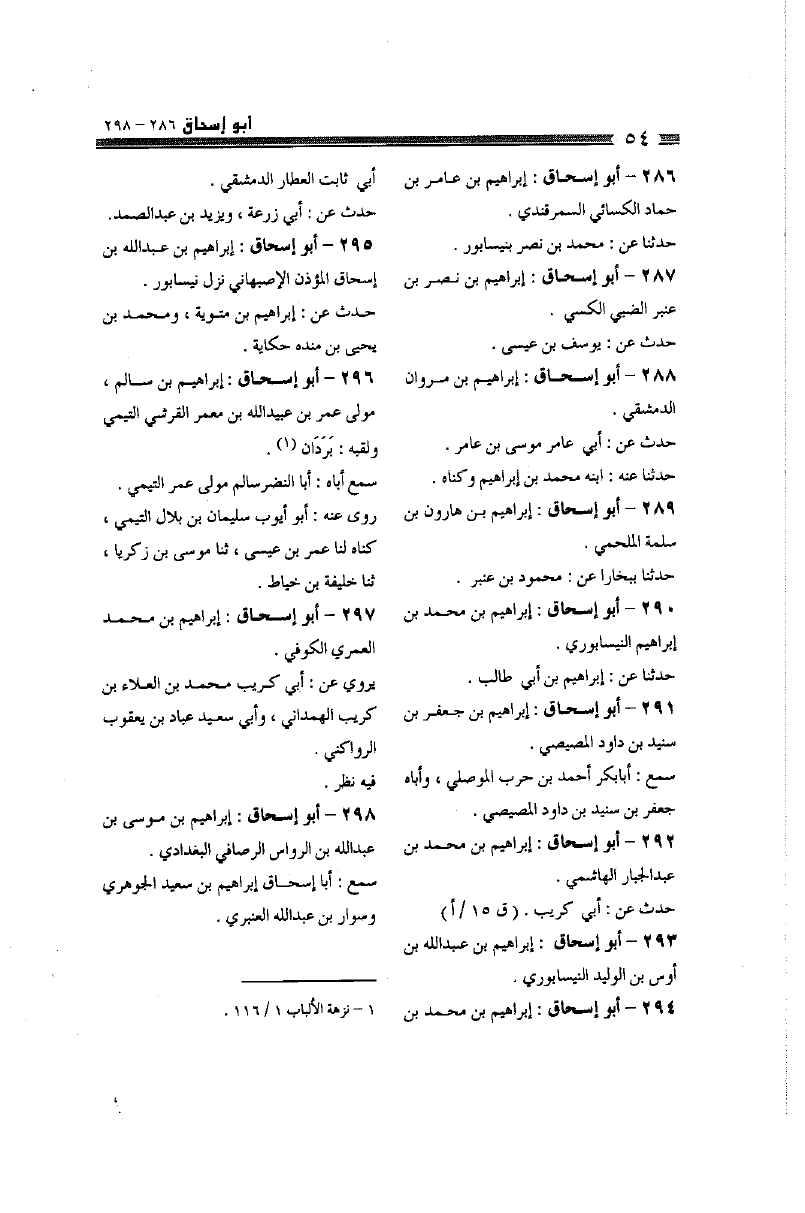 أبو إسحاق ٢٨٦ – ٢٩٨
٥٤
٢٨٦ – أبو إسحاق : إبراهيم بن عامر بن
حماد الكسائي السمرقندي .
حدثنا عن : محمد بن نصر بنيسابور .
٢٨٧ – أبو إسحاق : إبراهيم بن نصر بن
عنبر الضبي الكسي .
حدث عن : يوسف بن عيسى .
٢٨٨ – أبو إسحاق : إبراهيم بن مروان
الدمشقي .
حدث عن : أبي عامر موسى بن عامر .
حدثنا عنه : ابنه محمد بن إبراهيم وكناه .
٢٨٩ – أبو إسحاق : إبراهيم بن هارون بن
سلمة الملحمي .
حدثنا ببخارا عن : محمود بن عنبر .
٢٩٠ – أبو إسحاق : إبراهيم بن محمد بن
إبراهيم النيسابوري .
حدثنا عن : إبراهيم بن أبي طالب .
٢٩١ – أبو إسحاق : إبراهيم بن جعفر بن
سنيد بن داود المصيصي .
سمع : أبابكر أحمد بن حرب الموصلي ، وأباه
جعفر بن سنيد بن داود المصيصي .
٢٩٢ – أبو إسحاق : إبراهيم بن محمد بن
عبدالجبار الهاشمي .
حدث عن : أبي كريب . (ق ١٥ /أ)
٢٩٣ – أبو إسحاق : إبراهيم بن عبدالله بن
أوس بن الوليد النيسابوري .
٢٩٤ – أبو إسحاق : إبراهيم بن محمد بن
أبي ثابت العطار الدمشقي .
حدث عن : أبي زرعة ، ويزيد بن عبدالصمد.
٢٩٥ – أبو إسحاق : إبراهيم بن عبدالله بن
إسحاق المؤذن الإصبهاني نزل نيسابور .
حدث عن : إبراهيم بن متوية ، ومحمد بن
يحيى بن منده حكاية .
٢٩٦ – أبو إسحاق : إبراهيم بن سالم ،
مولى عمر بن عبيدالله بن معمر القرشي التيمي
ولقبه : بَرَدَان (١) .
سمع أباه : أبا النضرسالم مولى عمر التيمي .
روى عنه : أبو أيوب سليمان بن بلال التيمي ،
كناه لنا عمر بن عيسى ، ثنا موسى بن زكريا ،
ثنا خليفة بن خياط .
٢٩٧ – أبو إسحاق : إبراهيم بن محمد
العمري الكوفي .
يروي عن : أبي كريب محمد بن العلاء بن
كريب الهمداني ، وأبي سعيد عباد بن يعقوب
الرواكني .
فيه نظر .
٢٩٨ – أبو إسحاق : إبراهيم بن موسى بن
عبدالله بن الرواس الرصافي البغدادي .
سمع : أبا إسحاق إبراهيم بن سعيد الجوهري
وسوار بن عبدالله العنبري .
١ – نزهة الألباب ١ /١١٦ .